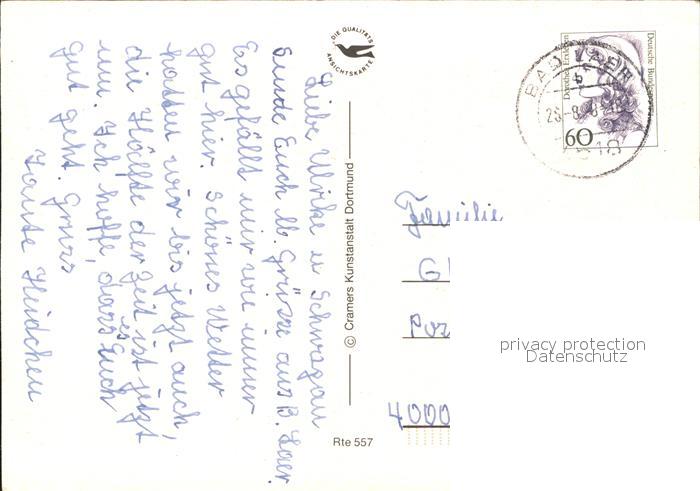 Liebe Ulrike u Schwagau
sende Euch lb. Grüsse aus B. Laer.
Es gefällt mir wie immer
gut hier. Schönes Wetter
hatten wir bis jetzt auch,
die Hälfte der Zeit ist jetzt
um. Ich hoffe, dass es Euch
gut geht. Gruss
Tante Heidchen
DIE QUALITÄTS
ANSICHTSKARTE
© Cramers Kunstanstalt Dortmund
Rte 557
Dorothea Erxleben
Deutsche Bundespost
60
BAD LAER
518
Familie
4000
privacy protection
Datenschutz